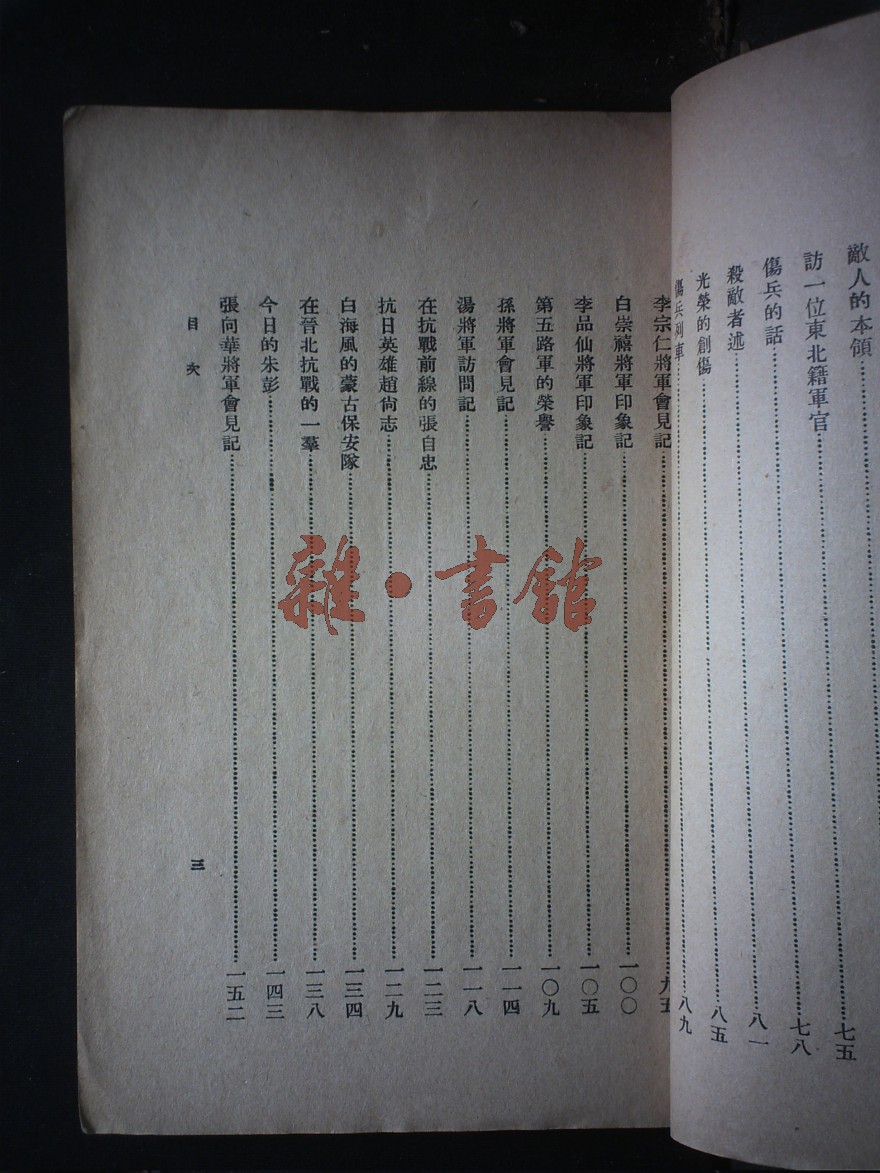 敵人的本領……七五
訪一位東北籍軍官……七八
傷兵的話……八一
殺敵者述……八五
光榮的創傷……八九
傷兵列車
李宗仁將軍會見記……九五
白崇禧將軍印象記……一〇〇
李品仙將軍印象記……一〇五
第五路軍的榮譽……一〇九
孫將軍會見記……一一四
湯將軍訪問記……一一八
在抗戰前線的張自忠……一二三
抗日英雄趙尚志……一二九
白海風的蒙古保安隊……一三四
在晉北抗戰的一羣……一三八
今日的朱彭……一四三
張向華將軍會見記……一五二
目次
三
雜·書館